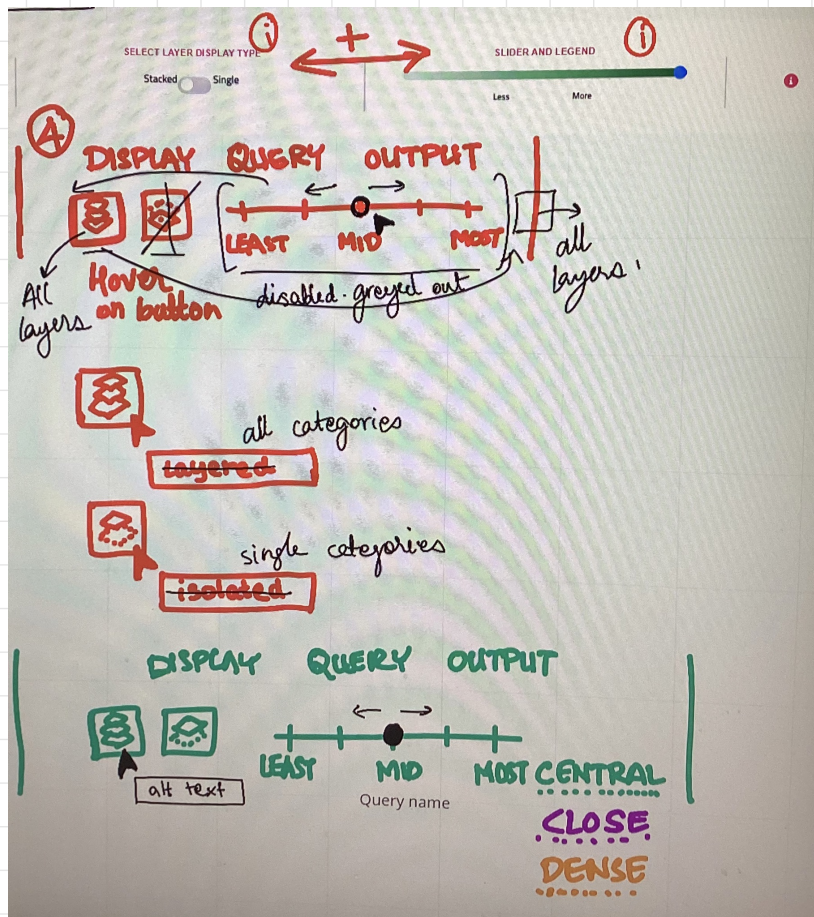 SELECT LAYER DISPLAY TYPE i + SLIDER AND LEGEND i
Stacked Single
i
Less More
4
DISPLAY QUERY OUTPUT
LEAST MID MOST
all layers
All layers
Hover on button
disabled - greyed out
all categories
layered
single categories
isolated
DISPLAY QUERY OUTPUT
LEAST MID MOST CENTRAL
alt text
Query name
CLOSE
DENSE